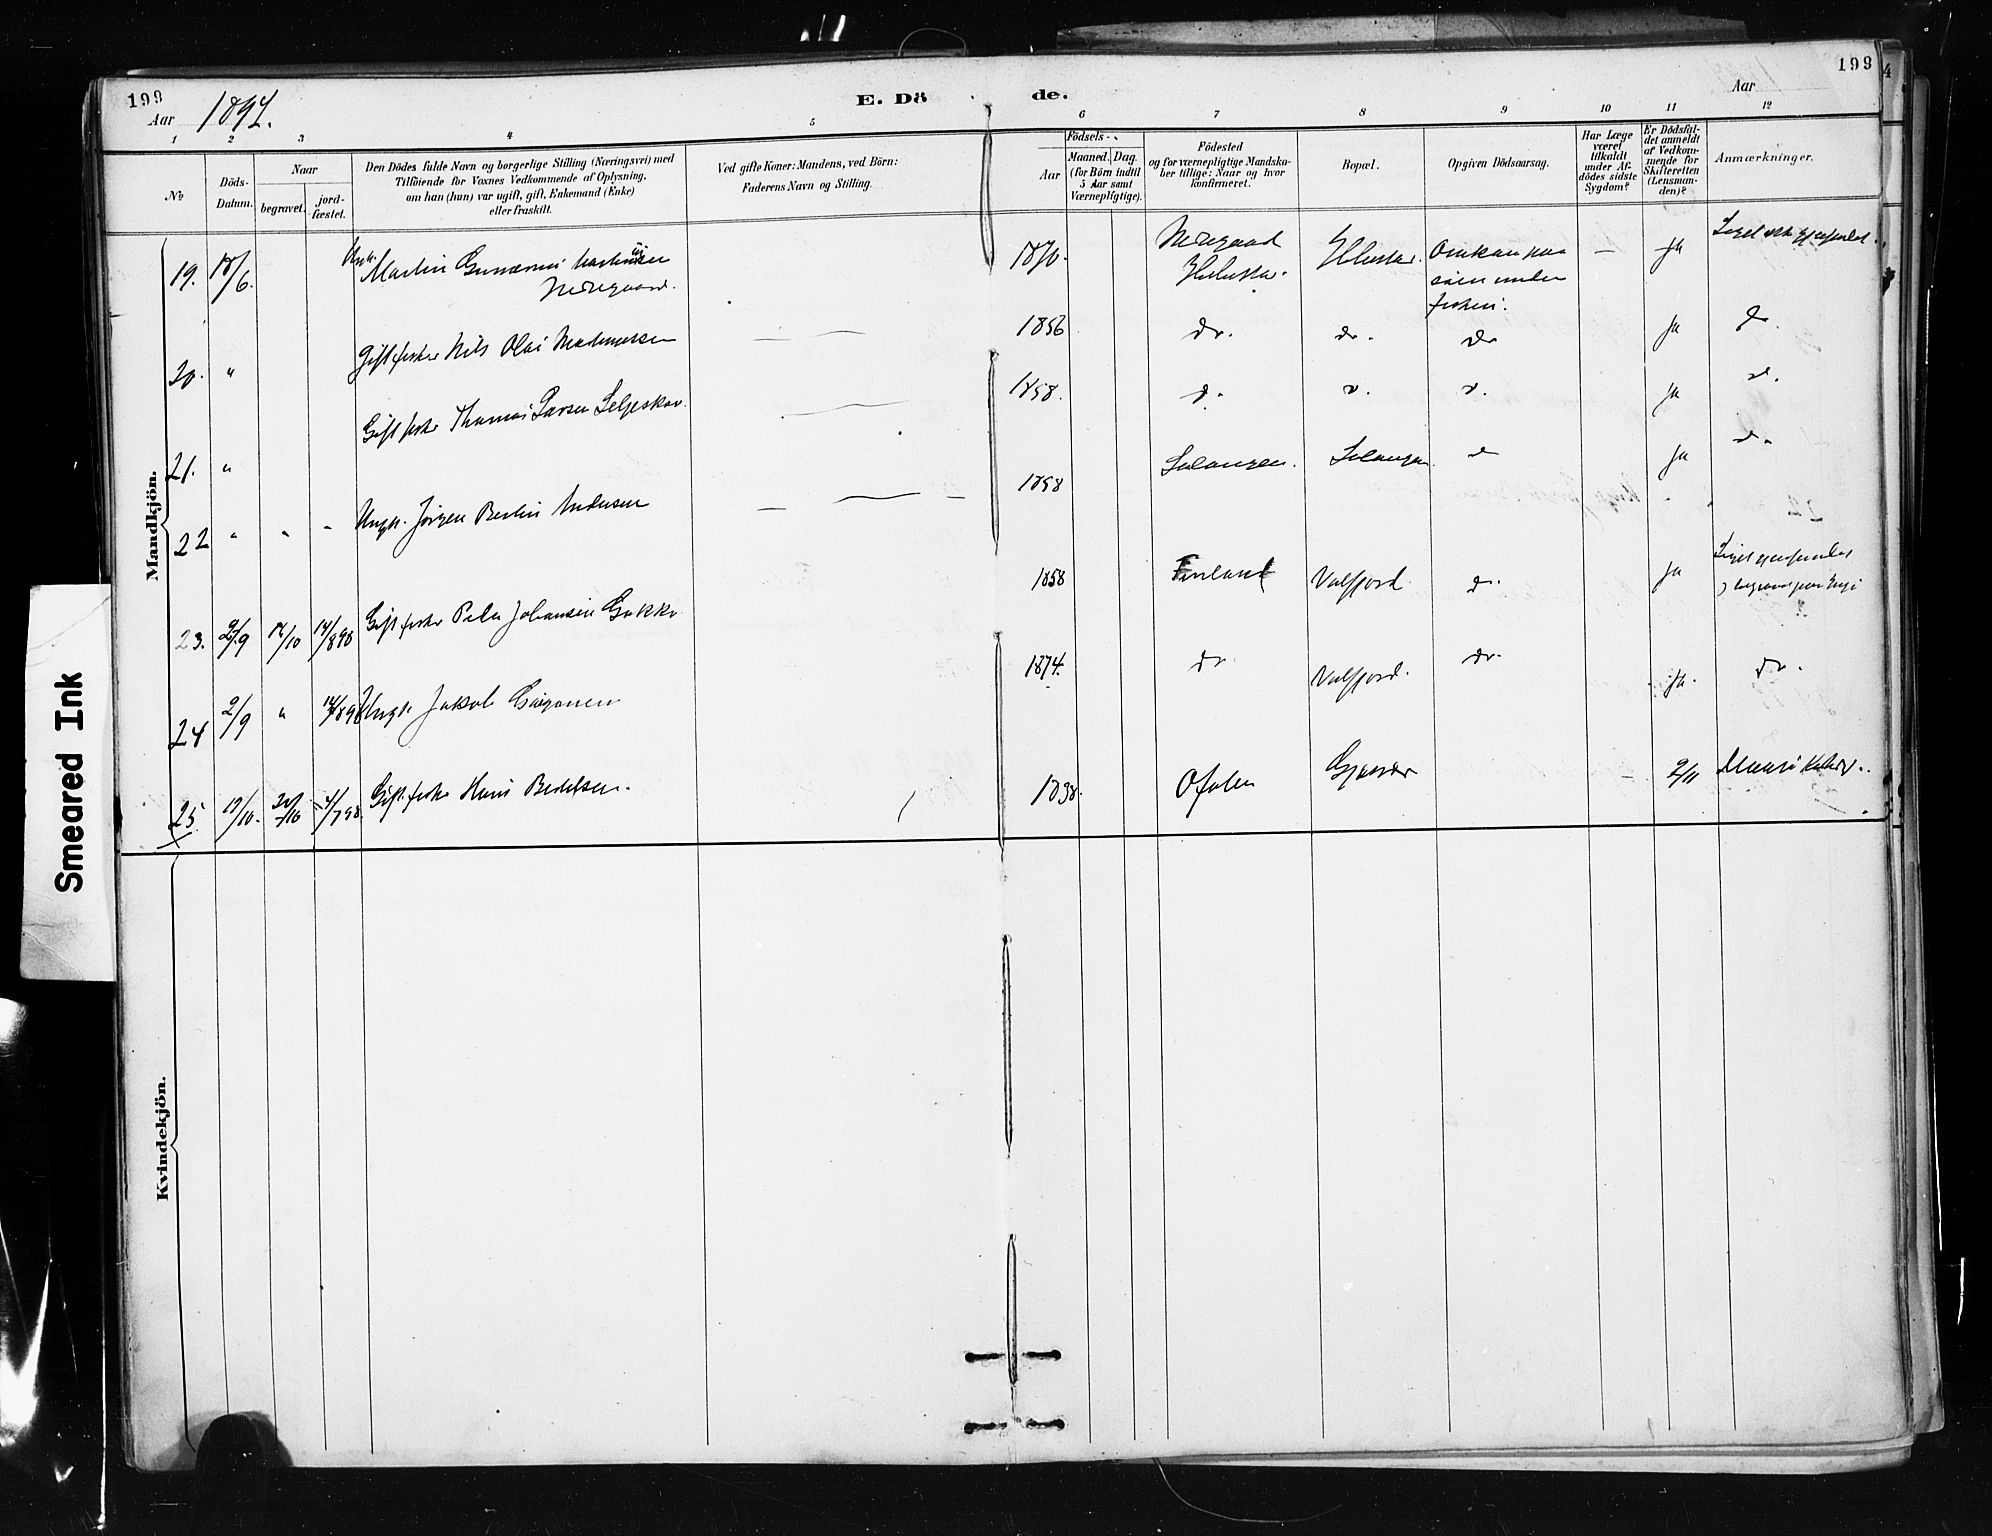 199
199
4
Aar 1897.
E. Dö de.
Aar
1 2 3 4 5 6 7 8 9 10 11 12
No
Döds-
Datum.
Naar
begravet.
jord-
fæstet.
Den Dödes fulde Navn og borgerlige Stilling (Næringsvei) med
Tilföiende for Voxnes Vedkommende af Oplysning,
om han (hun) var ugift, gift, Enkemand (Enke)
eller fraskilt.
Ved gifte Koner: Mandens, ved Börn:
Faderens Navn og Stilling.
Födsels-
Aar
Maaned.
Dag.
(for Börn indtil
5 Aar samt
Værnepligtige).
Födested
og for værnepligtige Mandska-
ber tillige: Naar og hvor
konfirmeret.
Bopæl.
Opgiven Dödsaarsag.
Har Læge
været
tilkaldt
under Af-
dödes sidste
Sygdom?
Er Dödsfal-
det anmeldt
af Vedkom-
mende for
Skifteretten
(Lensman-
den)?
Anmærkninger.
Mandkjön.
19. 18/6. Ungk. Martin
Nedregaard.
1870. Nedregaard Omkom paa
søen under
fiskeri. — Ja
20. " Gift fisker Nils Olai 1856 do. do. do Ja do.
21. " Gift fisker Thomas Larsen Seljeskov. 1858. Ja
22 " " " Ungk. Jörgen Berlin Andersen 1858 Salangen. Salangen. Ja
23. 2/9 14/10 14/898 Gift fisker Peder Johansen Gukko 1858 Finland Valfjord. do. Ja
24 2/9 " 14/898 Ungk. Jakob 1874. do Valfjord. do. Ja. do.
25. 19/10. 24/10 4/798. Gift fisker Hans Bertelsen. 1838. Ofoten Gjesvær — 2/11
Kvindekjön.
Smeared Ink